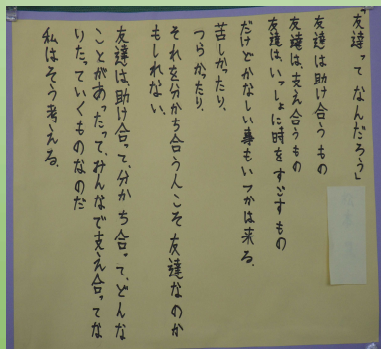 「友達って なんだろう」
友達は助け合うもの
友達は、支え合うもの
友達は、いっしょに時をすごすもの
だけどかなしい事もいつかは来る。
苦しかったり、
つらかったり、
それを分かち合う人こそ友達なのか
もしれない。
友達は、助け合って、分かち合って、どんな
ことがあったって、みんなで支え合ってな
りたっていくものなのだ
私はそう考える。